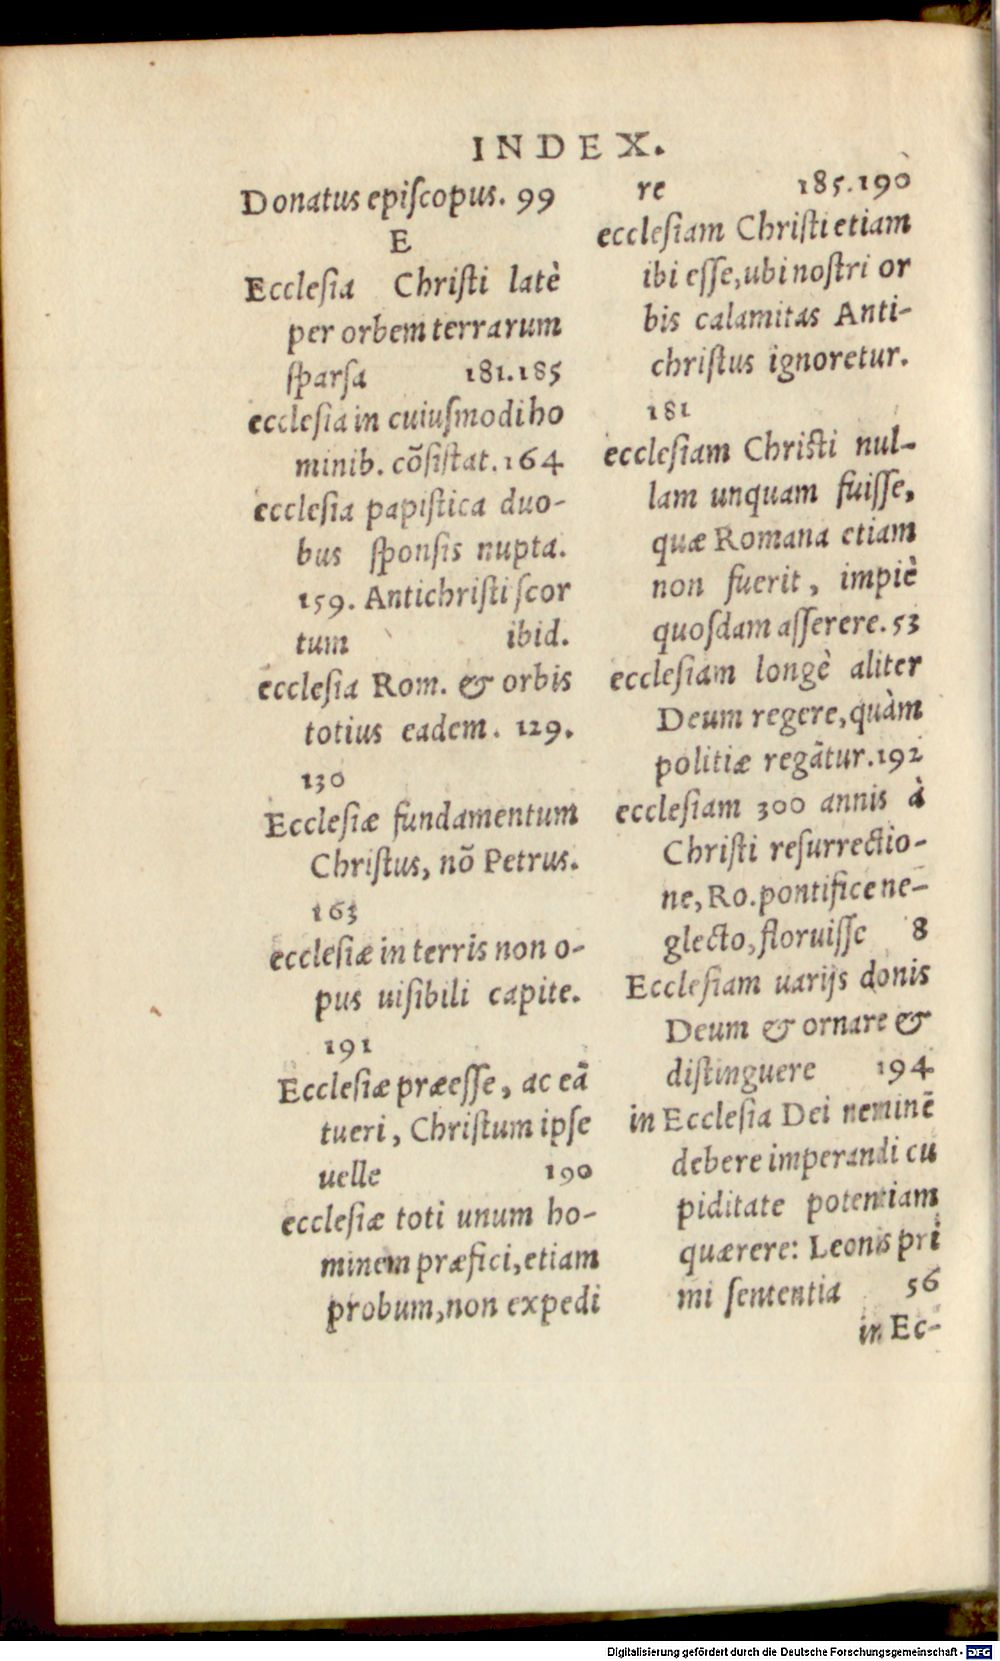 INDEX.
Donatus episcopus. 99
E
Ecclesia Christi latè
per orbem terrarum
sparsa 181.185
ecclesia in cuiusmodi ho
minib. cõsistat. 164
ecclesia papistica duo-
bus sponsis nupta.
159. Antichristi scor
tum ibid.
ecclesia Rom. & orbis
totius eadem. 129.
130
Ecclesiæ fundamentum
Christus, nõ Petrus.
163
ecclesiæ in terris non o-
pus uisibili capite.
191
Ecclesiæ præesse, ac eã
tueri, Christum ipse
uelle 190
ecclesiæ toti unum ho-
minem præfici, etiam
probum, non expedi
re 185.190
ecclesiam Christi etiam
ibi esse, ubi nostri or
bis calamitas Anti-
christus ignoretur.
181
ecclesiam Christi nul-
lam unquam fuisse,
quæ Romana etiam
non fuerit, impiè
quosdam asserere. 53
ecclesiam longè aliter
Deum regere, quàm
politiæ regãtur. 192
ecclesiam 300 annis à
Christi resurrectio-
ne, Ro. pontifice ne-
glecto, floruisse 8
Ecclesiam uarijs donis
Deum & ornare &
distinguere 194
in Ecclesia Dei neminẽ
debere imperandi cu
piditate potentiam
quærere: Leonis pri
mi sententia 56
in Ec-
Digitalisierung gefördert durch die Deutsche Forschungsgemeinschaft - DFG